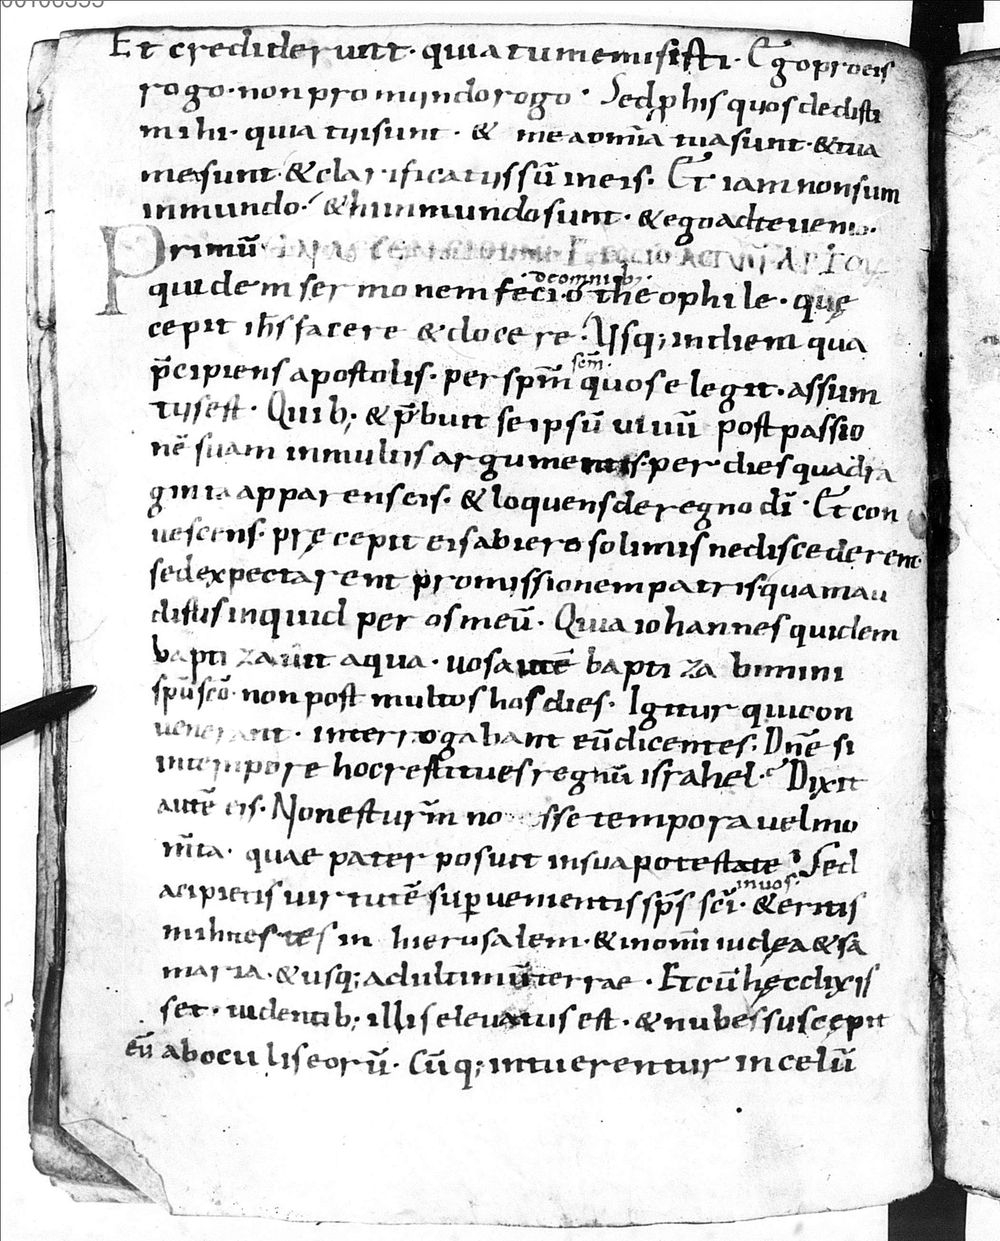 Et crediderunt· quia tu me misisti· Ego pro eis
rogo· non pro mundo rogo· Sed p his quos dedisti
mihi· quia tui sunt· & mea omīa tua sunt· & tua
mea sunt· & clarificatus sū in eis· Et iam non sum
in mundo· & hi in mundo sunt· & ego ad te uenio·
Primū lectio actuū
de omnib;
quidem sermonem feci· o theophile· quę
cepit ihs facere & docere· Usq; in diem qua
scm·
p̄cipiens apostolis· per spm̄ quos elegit· assum
tus est· Quib; & p̄buit se ipsū uiuū post passio
nē suam in multis argumentis· per dies quadra
ginta apparens eis· & loquens de regno dī· Et con
uescens· pręcepit eis ab ierosolimis ne discederent
sed expectarent promissionem patris quam au
distis inquid per os meū· Quia iohannes quidem
baptizauit aqua· uos autē baptizabimini
spū scō· non post multos hos dies· Igitur qui con
uenerant· interrogabant eū dicentes· Dn̄e si
in tempore hoc restitues regnū israhel· Dixit
autē eis· Non est urm̄ no sse tempora uel mo
m̄ta· quae pater posuit in sua potestate· Sed
in uos·
acipietis uirtutē superuenientis sp̄s scī· & eritis
mihi testes in hierusalem· & in omni iudęa & sa
maria· & usq; ad ultimū terrae· Et cū hęc dixis
set· uidentib; illis eleuatus est· & nubes suscępit
eū ab oculis eorū· Cūq; intuerentur in celū